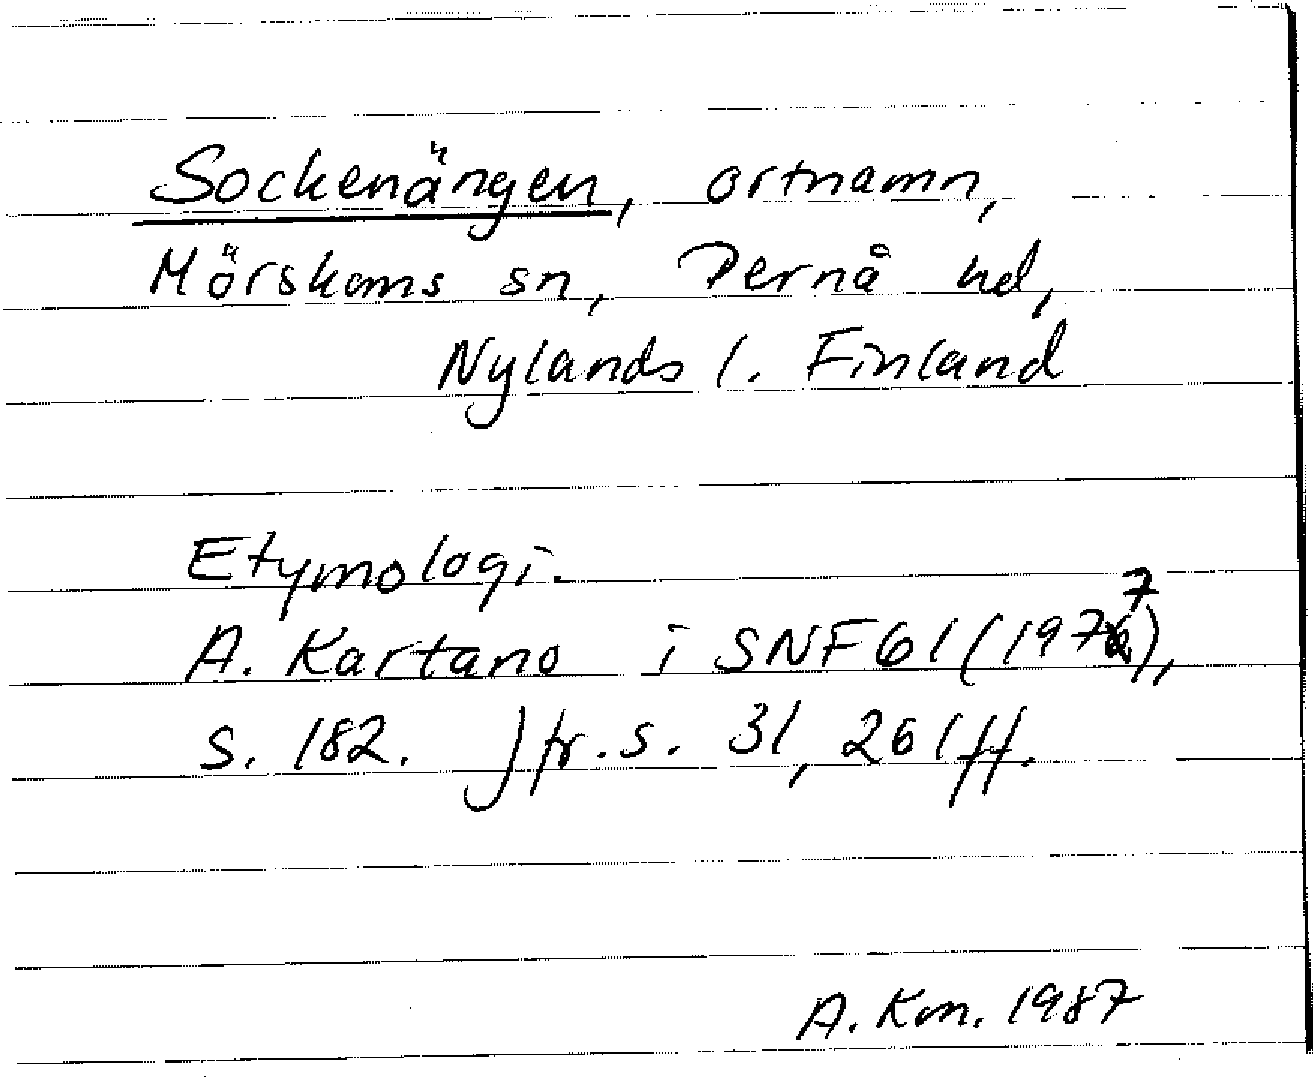 Sockenängen, ortnamn,
Mörskoms sn, Pernå hd,
Nylands l. Finland
Etymologi.
A. Kartano i SNF 61 (1977),
s. 182. Jfr. s. 31, 261 ff.
A. Km. 1987